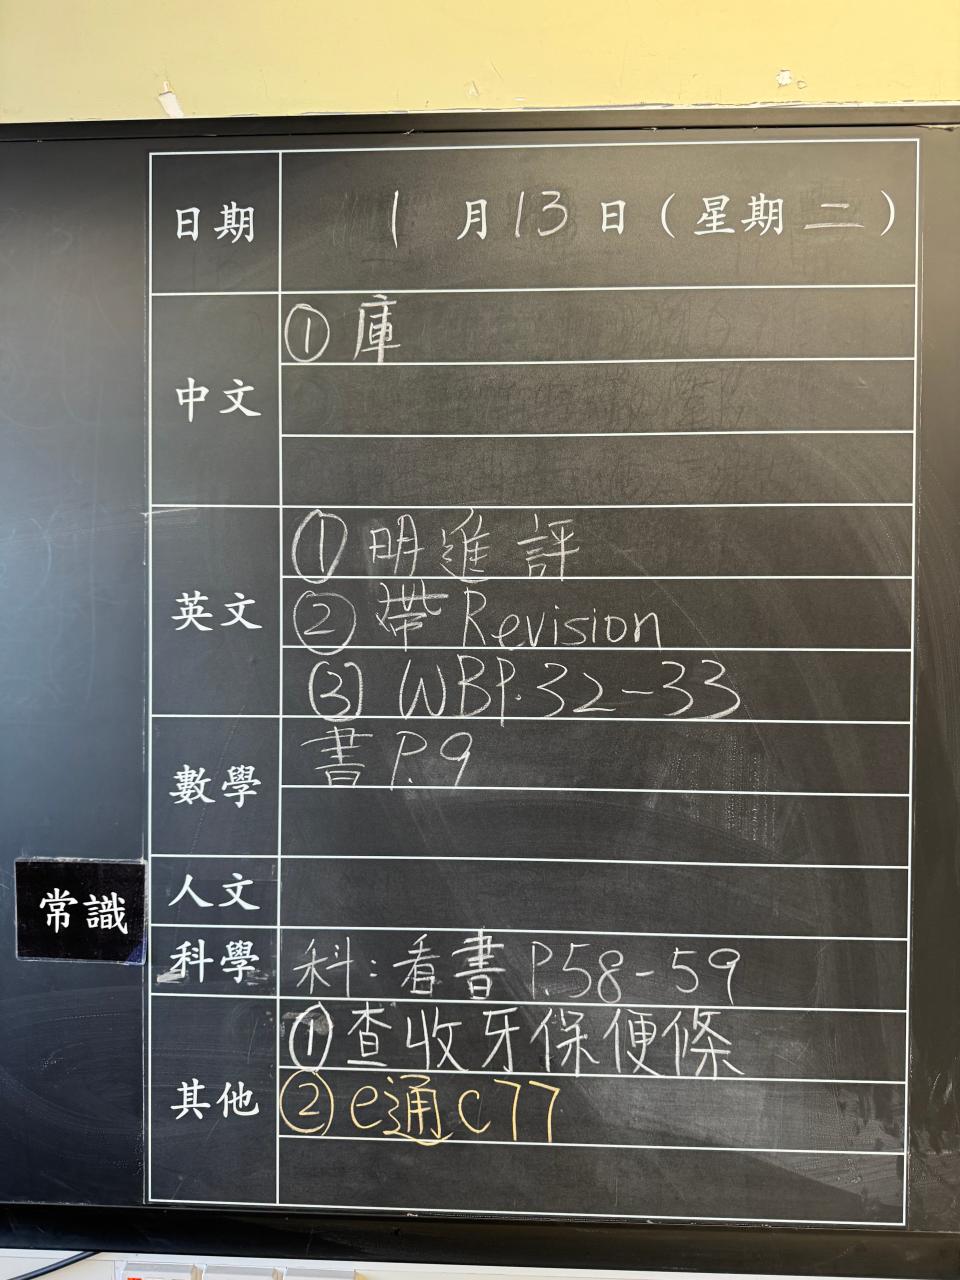 日期 1 月 13 日 ( 星期 二 )
中文
① 庫
英文
① 明進評
② 帶 Revision
③ WBP.32-33
數學
書 P.9
人文
常識
科學
科：看書 P.58-59
其他
① 查收牙保便條
② e通C77